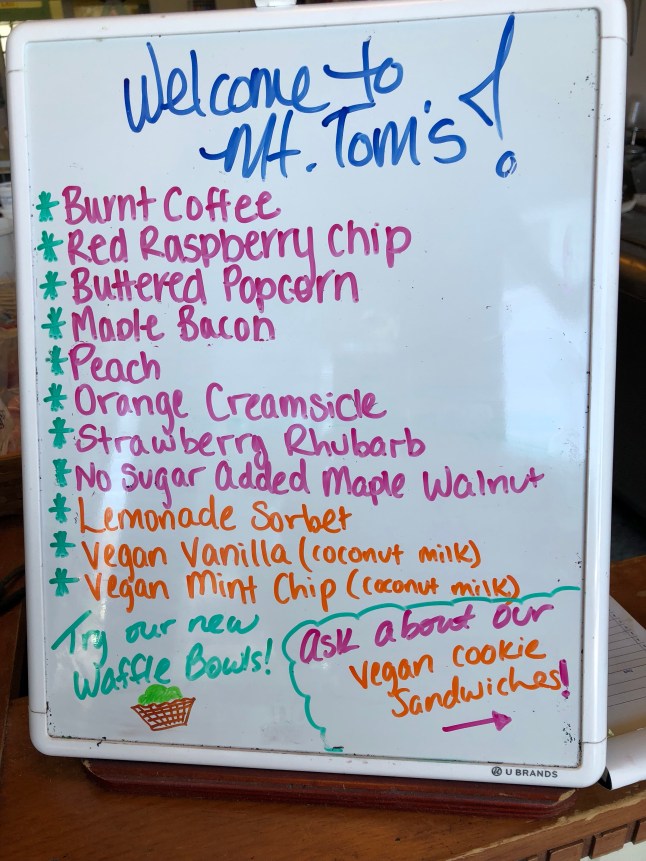 Welcome to
Mt. Tom's!
* Burnt Coffee
* Red Raspberry Chip
* Buttered Popcorn
* Maple Bacon
* Peach
* Orange Creamsicle
* Strawberry Rhubarb
* No Sugar Added Maple Walnut
* Lemonade Sorbet
* Vegan Vanilla (coconut milk)
* Vegan Mint Chip (coconut milk)
Try our new
Waffle Bowls!
Ask about our
Vegan cookie
Sandwiches!
U BRANDS